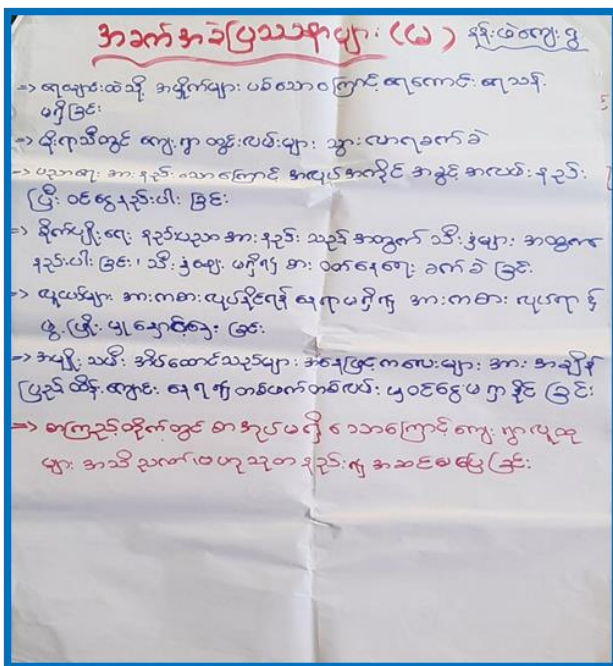 အခက်အခဲပြဿနာများ (မ) နန်းဖဲကျေးရွာ
=> ရေချောင်းထဲသို့ အမှိုက်များ ပစ်သောကြောင့် ရေကောင်း ရေသန့်
မရှိခြင်း
=> မိုးရာသီတွင် ကျေးရွာတွင်းလမ်းများ သွားလာရခက်ခဲ
-> ပညာရေး အားနည်းသောကြောင့် အလုပ်အကိုင် အခွင့်အလမ်းနည်း
ပြီး ဝင်ငွေနည်းပါးခြင်း
=> စိုက်ပျိုးရေး နည်းပညာအားနည်းသည့်အတွက် သီးနှံများ အထွက်
နည်းပါးခြင်း၊ သီးနှံဈေး မရှိ၍ စားဝတ်နေရေး ခက်ခဲခြင်း
=> လူငယ်များ အားကစားလုပ်နိုင်ရန် နေရာမရှိ၍ အားကစား လုပ်ရာ၌
ဖွံ့ဖြိုးမှုနှောင့်နှေးခြင်း
=> အမျိုးသမီး အိမ်ထောင်သည်များ အနေဖြင့် ကလေးများအား အချိန်
ပြည့်ထိန်းကျောင်းနေရ၍ တစ်ဖက်တစ်လမ်းမှ ဝင်ငွေမရှာနိုင်ခြင်း
=> စာကြည့်တိုက်တွင် စာအုပ်မရှိသောကြောင့် ကျေးရွာလူထု
များ အသိဉာဏ်ဗဟုသုတနည်း၍ အဆင်မပြေခြင်း